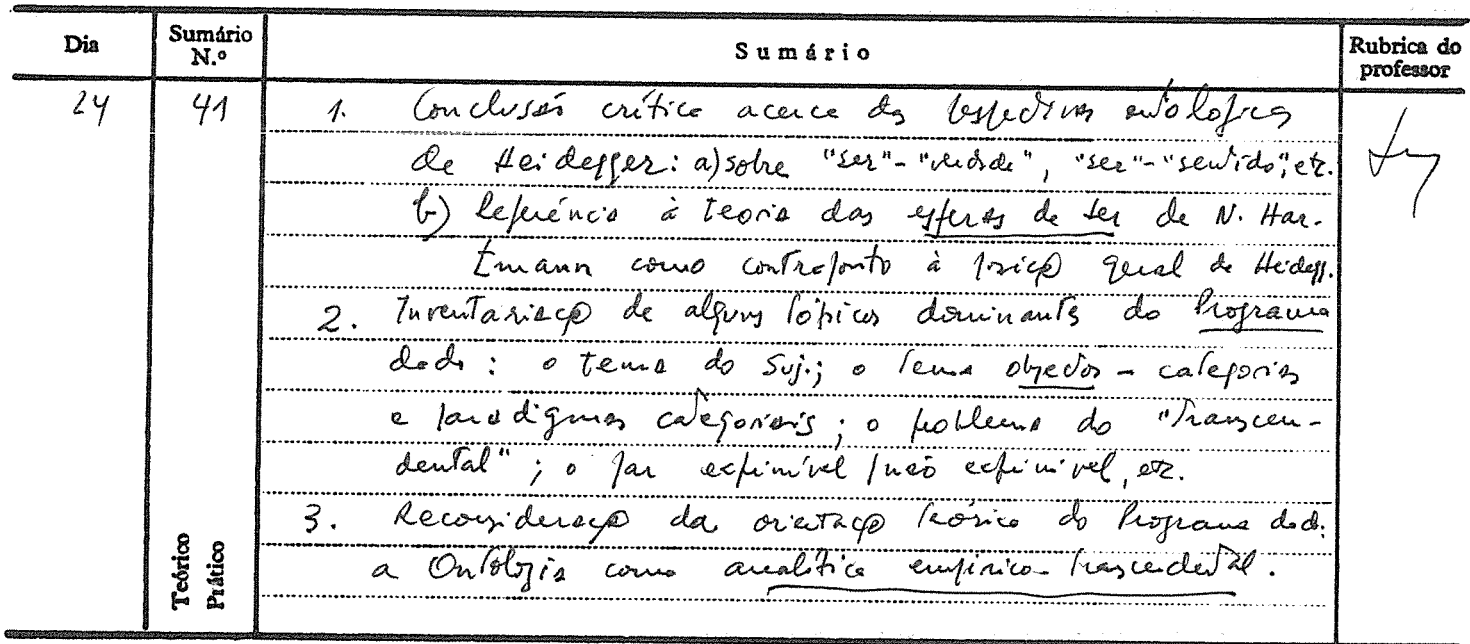 Dia Sumário N.º Sumário Rubrica do professor
24 41 1. Conclusões crítica acerca das perspectivas ontológicas
de Heidegger: a) sobre "ser"-"verdade", "ser"-"sentido", etc.
b) Referência à teoria das esferas de ser de N. Har-
tmann como contraponto à posição geral de Heidegg.
2. Inventariação de alguns tópicos dominantes do Programa
dado: o tema do Suj.; o tema objectos - categorias
e paradigmas categoriais; o problema do "Transcen-
dental"; o par exprimível / não exprimível, etc.
3. Reconsideração da orientação teórica do Programa dado:
a Ontologia como analítica empírico-transcendental.
Teórico
Prático